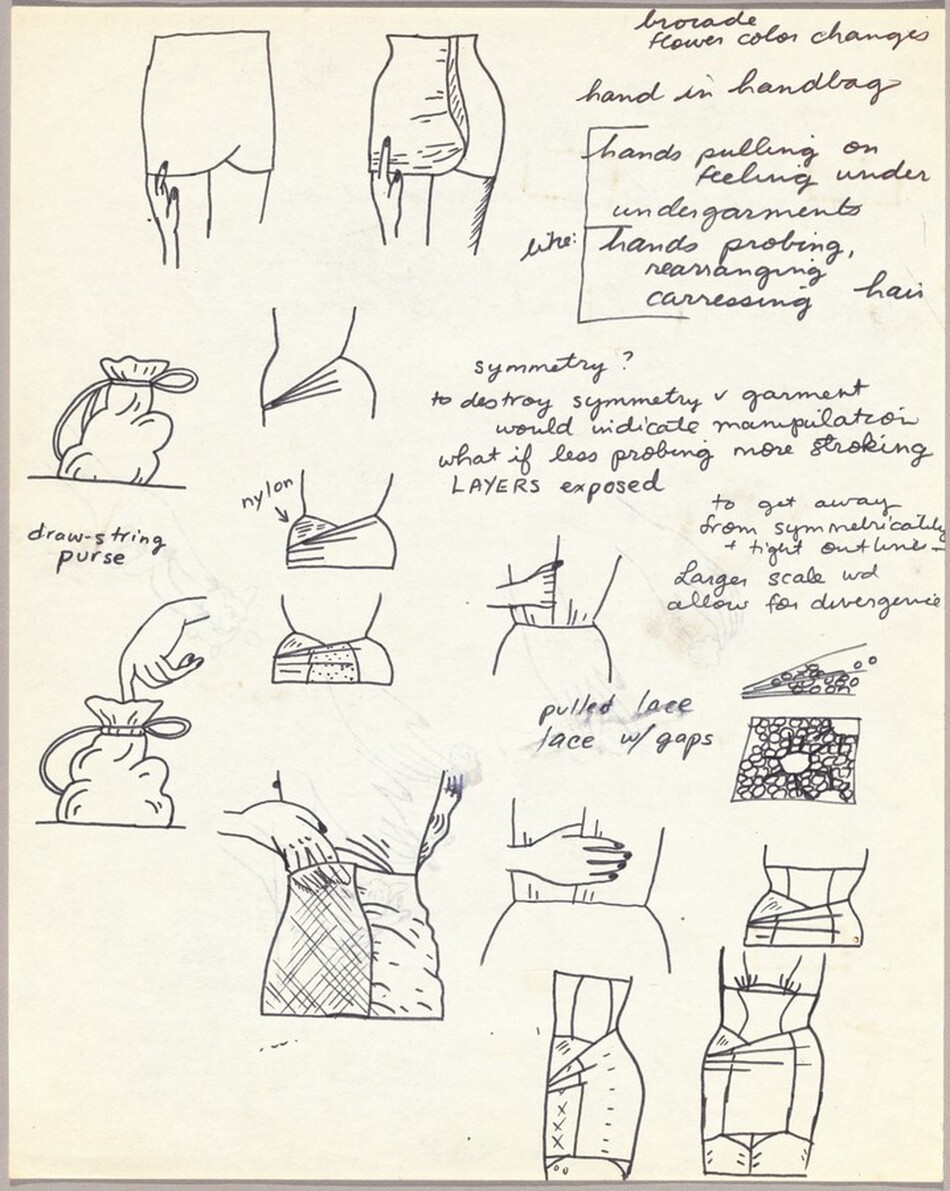 brocade
flower color changes
hand in handbag
hands pulling on
feeling under
undergarments
like:
hands probing,
rearranging
carressing hair
symmetry?
to destroy symmetry v garment
would indicate manipulation
what if less probing more stroking
LAYERS exposed
nylon
to get away
from symmetrically
+ tight outlines-
Larger scale wd
allow for divergence
draw-string
purse
pulled lace
lace w/ gaps